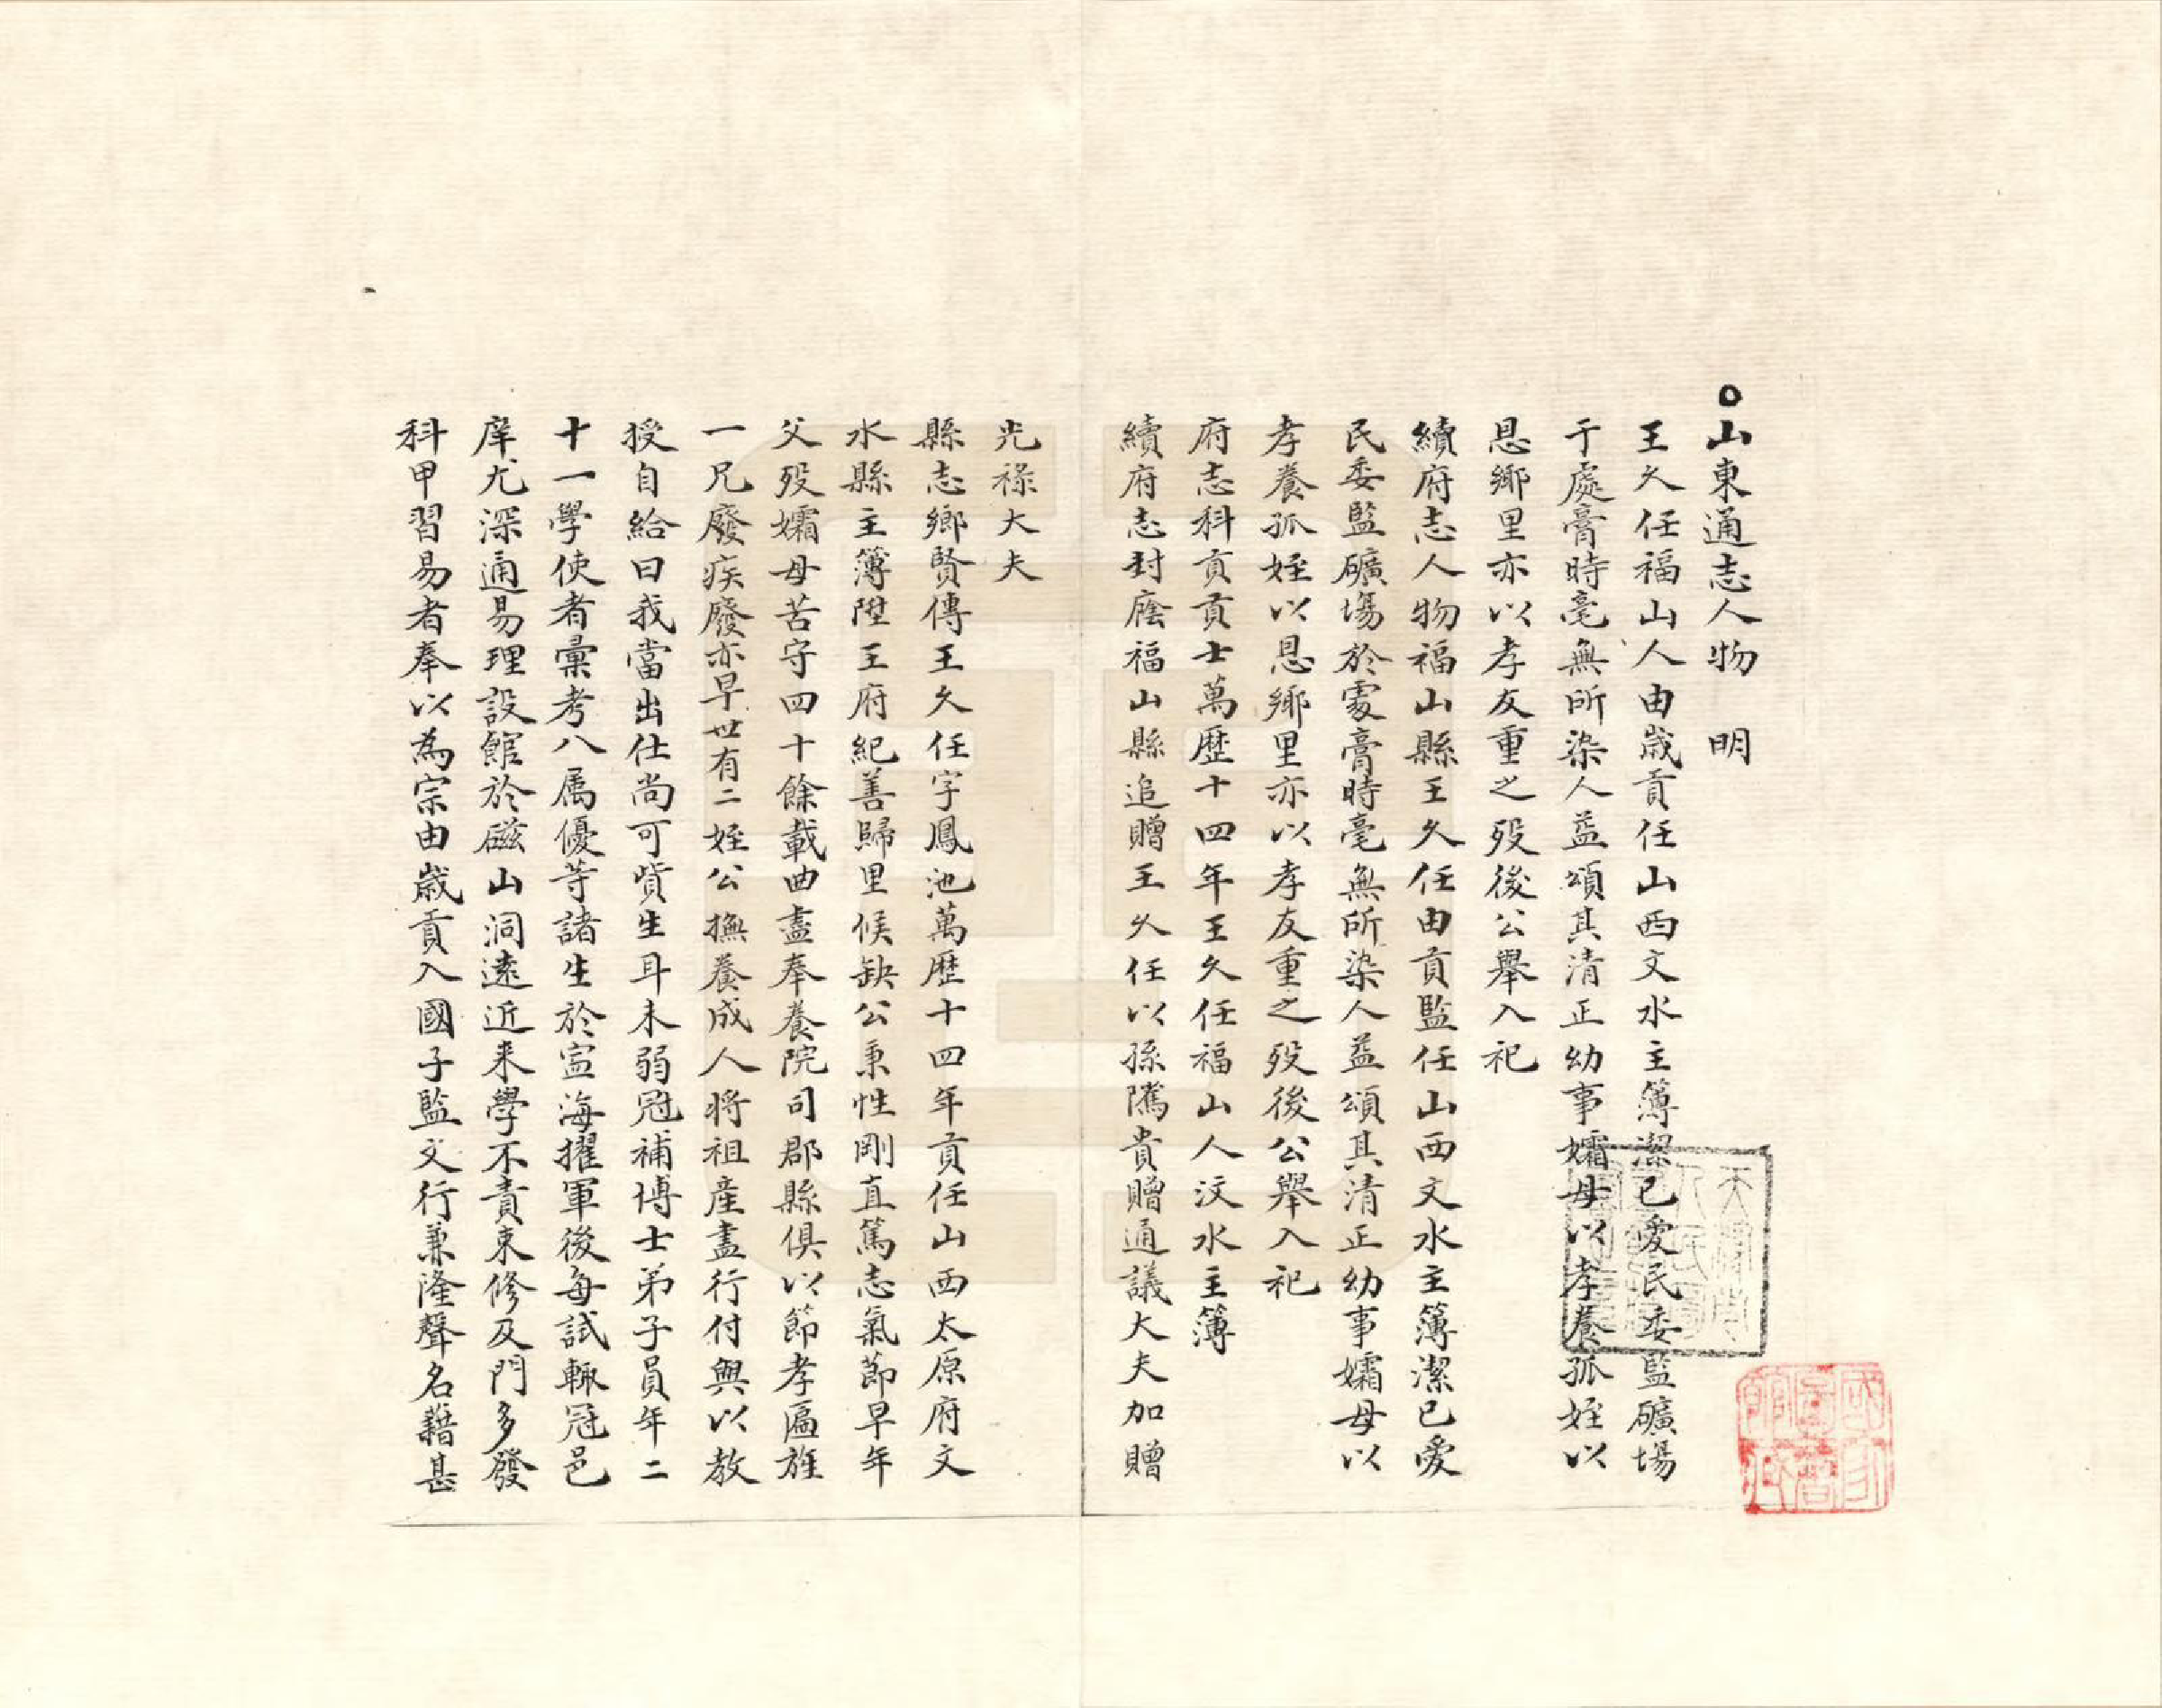 ○山東通志人物　明
王久任福山人由歲貢任山西文水主簿潔已愛民委監礦場
于處膏時毫無所染人益頌其清正幼事孀母以孝養孤姪以
恩鄉里亦以孝友重之歿後公舉入祀
續府志人物福山縣王久任由貢監任山西文水主簿潔已愛
民委監礦場於處膏時毫無所染人益頌其清正幼事孀母以
孝養孤姪以恩鄉里亦以孝友重之歿後公舉入祀
府志科貢貢士萬歷十四年王久任福山人汶水主簿
續府志封廕福山縣追贈王久任以孫隲貴贈通議大夫加贈
光祿大夫
縣志鄉賢傳王久任字鳳池萬歷十四年貢任山西太原府文
水縣主簿陞王府紀善歸里候缺公秉性剛直篤志氣節早年
父歿孀母苦守四十餘載曲盡奉養院司郡縣俱以節孝匾旌
一兄廢疾廢亦早世有二姪公撫養成人將祖產盡行付與以教
授自給曰我當出仕尚可貲生耳未弱冠補博士弟子員年二
十一學使者彙考八属優等諸生於寍海擢軍後每試輒冠邑
庠尤深通易理設館於磁山洞遠近来學不責束修及門多發
科甲習易者奉以為宗由歲貢入國子監文行兼隆聲名藉甚